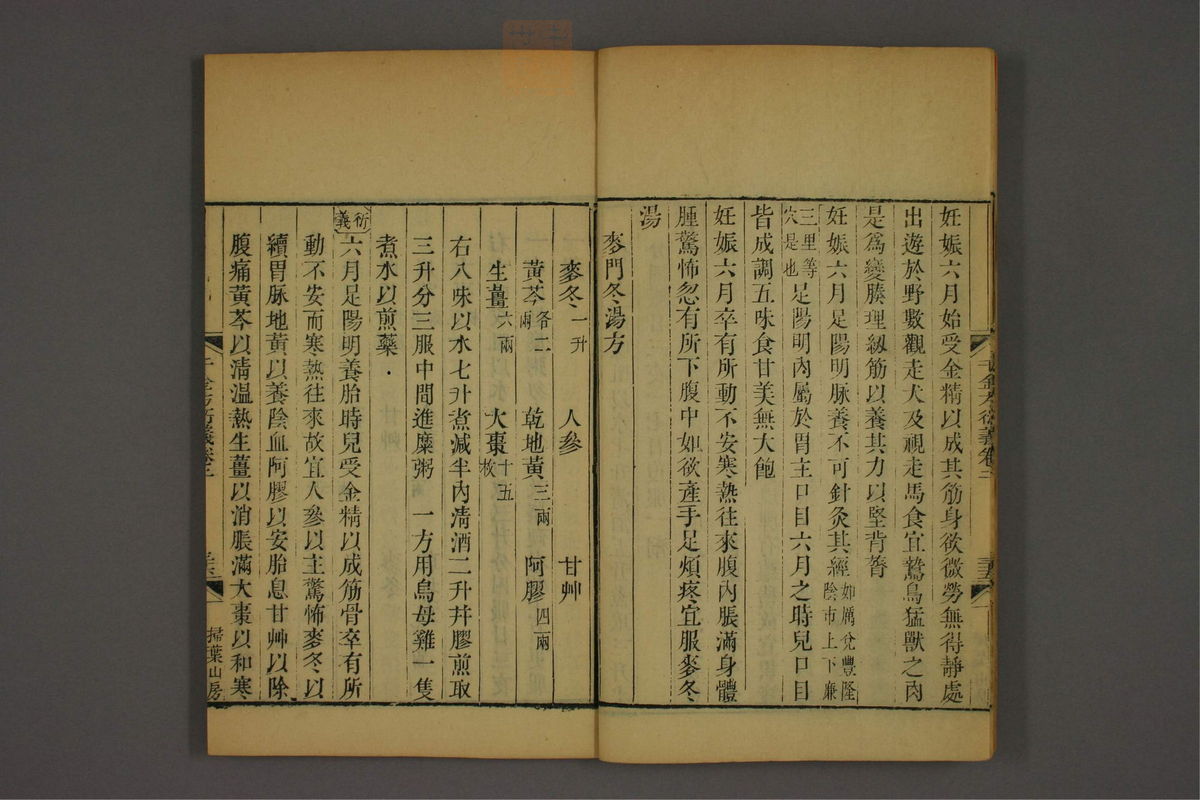 妊娠六月始受金精以成其筋身欲微勞無得靜處
出遊於野數觀走犬及視走馬食宜鷙鳥猛獸之肉
是爲變腠理紉筋以養其力以堅背膂
妊娠六月足陽明脉養不可針灸其經如厲兌豐隆陰市上下廉
三里等穴是也足陽明內屬於胃主口目六月之時兒口目
皆成調五味食甘美無大飽
妊娠六月卒有所動不安寒熱往來腹內脹滿身體
腫驚怖忽有所下腹中如欲產手足煩疼宜服麥冬
湯
麥門冬湯方
麥冬一升 人參 甘艸
黃芩各二兩 乾地黃三兩 阿膠四兩
生薑六兩 大棗十五枚
右八味以水七升煮減半內清酒二升并膠煎取
三升分三服中間進糜粥 一方用烏母雞一隻
煮水以煎藥
衍義六月足陽明養胎時兒受金精以成筋骨卒有所
動不安而寒熱往來故宜人參以主驚怖麥冬以
續胃脉地黃以養陰血阿膠以安胎息甘艸以除
腹痛黃芩以清溫熱生薑以消脹滿大棗以和寒
千金方衍義卷三
掃葉山房